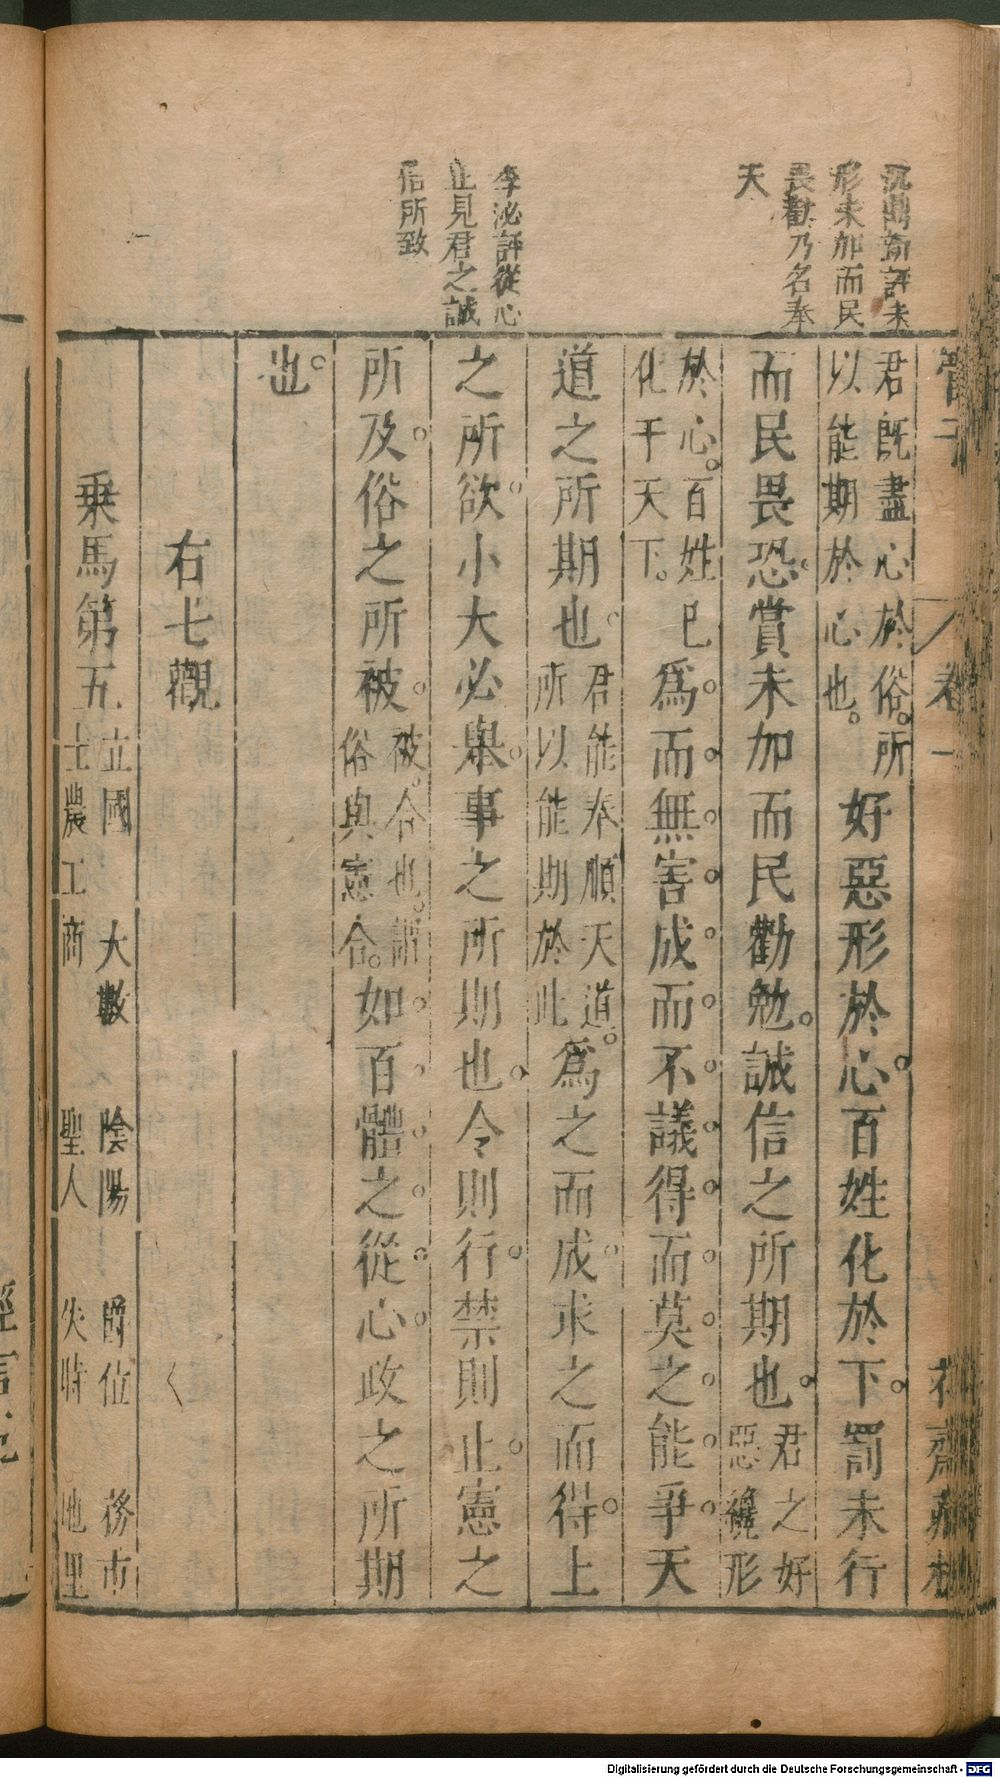 沉鼎新評未
形未加而民
畏勸乃名奉
天
李泌評從心
止見君之誠
信所致
管子 卷一 花齋藏板
君既盡心於俗所
以能期於心也
好惡形於心百姓化於下罰未行
而民畏恐賞未加而民勸勉誠信之所期也
君之好
惡纔形
於心百姓已
化于天下
爲而無害成而不議得而莫之能爭天
道之所期也
君能奉順天道
所以能期於此
爲之而成求之而得上
之所欲小大必舉事之所期也令則行禁則止憲之
所及俗之所被
被合也謂
俗與憲合
如百體之從心政之所期
也
右七觀
乗馬第五
立國 大數 陰陽 爵位 務市
士農工商 聖人 失時 地里
Digitalisierung gefördert durch die Deutsche Forschungsgemeinschaft - DFG